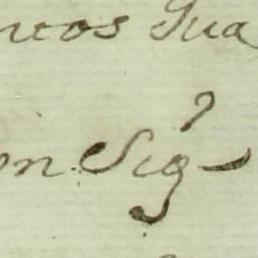 ntos Sua
on Sig